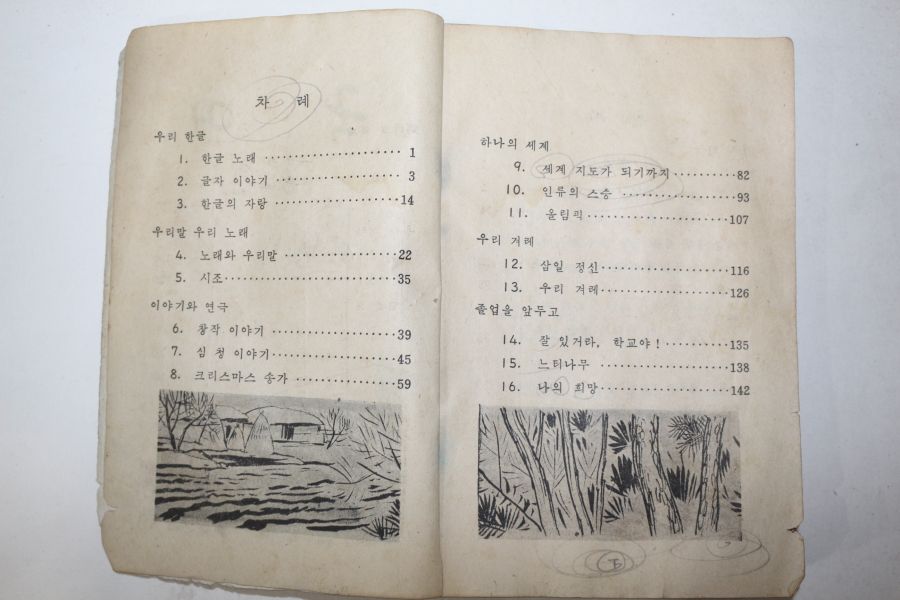 차 례
우리 한글
1. 한글 노래 ···················· 1
2. 글자 이야기 ·················· 3
3. 한글의 자랑 ··················14
우리말 우리 노래
4. 노래와 우리말 ················22
5. 시조··························35
이야기와 연극
6. 창작 이야기 ··················39
7. 심 청 이야기··················45
8. 크리스마스 송가 ··············59
하나의 세계
9. 세계 지도가 되기까지··········82
10. 인류의 스승 ················93
11. 올림픽······················107
우리 겨레
12. 삼일 정신····················116
13. 우리 겨레····················126
졸업을 앞두고
14. 잘 있거라, 학교야!············135
15. 느티나무 ····················138
16. 나의 희망····················142